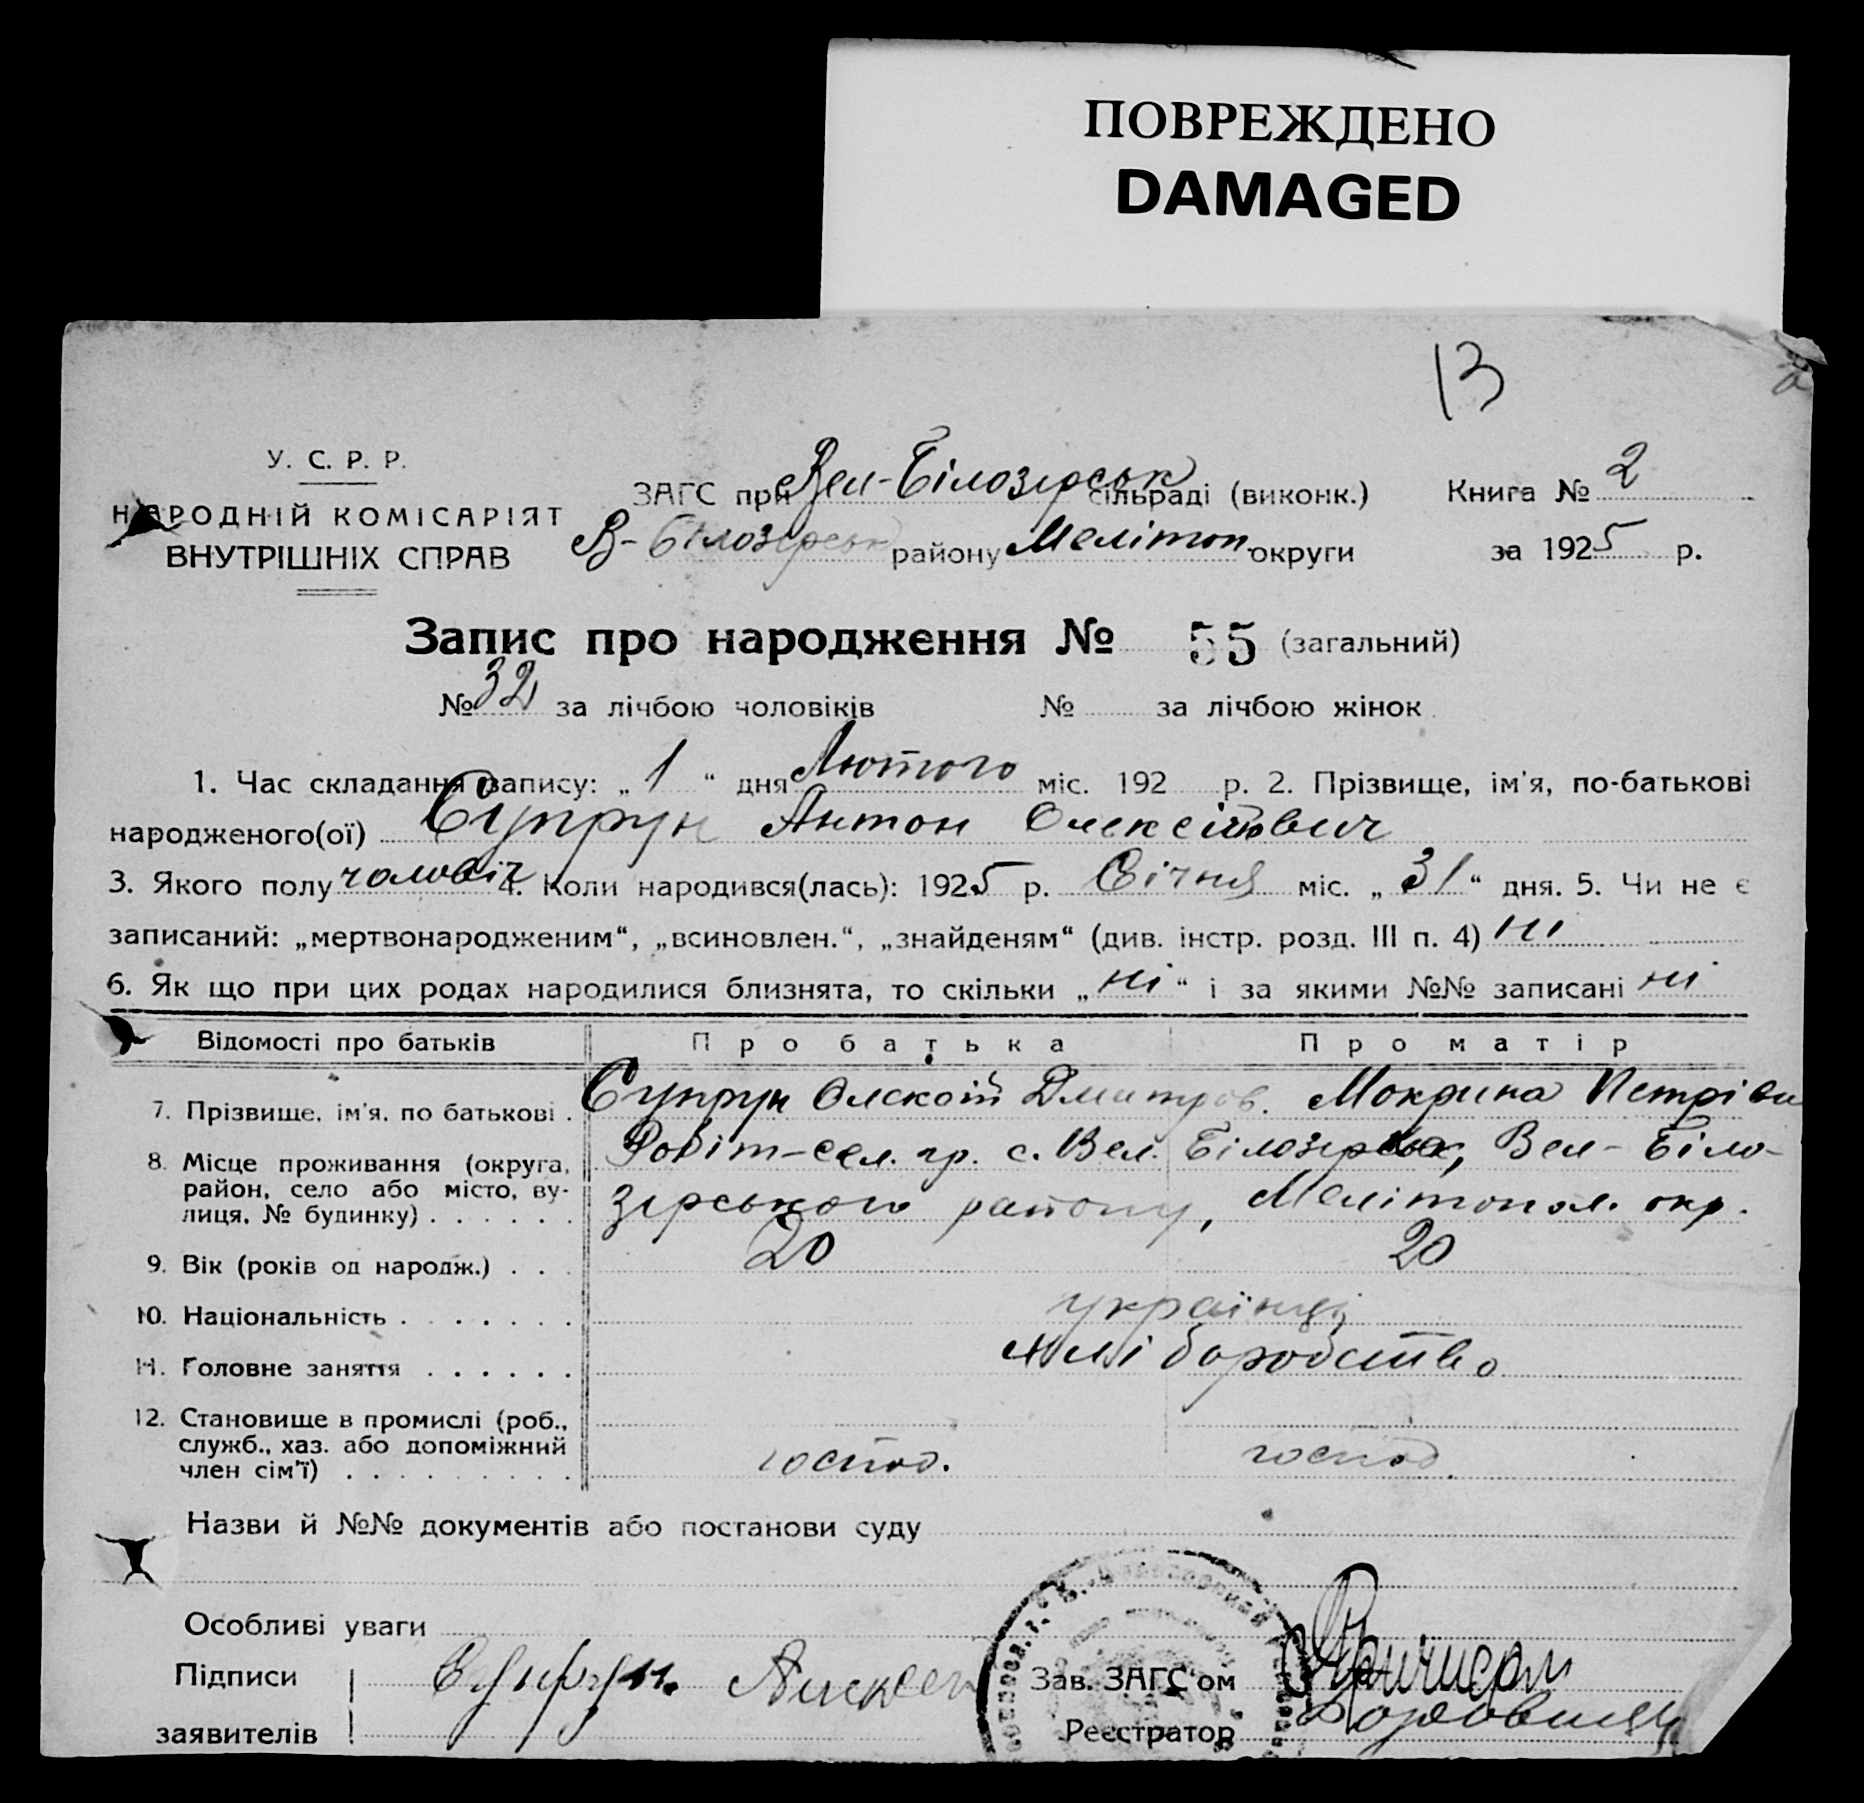 ПОВРЕЖДЕНО
DAMAGED
13
У. С. Р. Р.
НАРОДНІЙ КОМІСАРІЯТ
ВНУТРІШНІХ СПРАВ
ЗАГС при Вел-Білозірськ сільраді (виконк.)
В-Білозірськ району Мелітоп. округи
Книга № 2
за 1925 р.
Запис про народження № 55 (загальний)
№ 32 за лічбою чоловіків № за лічбою жінок
1. Час складання запису: „ 1 “ дня Лютого міс. 192 р. 2. Прізвище, ім'я, по-батькові
народженого(ої) Супрун Антон Олексійович
3. Якого полу чоловіч 4. Коли народився(лась): 1925 р. Січня міс. „ 31 “ дня. 5. Чи не є
записаний: „мертвонародженим“, „всиновлен.“, „знайденям“ (див. інстр. розд. III п. 4) ні
6. Як що при цих родах народилися близнята, то скільки „ ні “ і за якими №№ записані ні
Відомості про батьків Про батька Про матір
7. Прізвище, ім'я, по батькові . Супрун Олексій Дмитров. Мокрина Петрівн
8. Місце проживання (округа, район, село або місто, ву-лиця, № будинку) . . . . . . Робіт-сел. гр. с. Вел. Білозірськ, Вел-Біло-
зірського району, Мелітопол. окр.
9. Вік (років од народж.) . . . 20 20
10. Національність . . . . . . . українці
11. Головне заняття . . . . . . хліборобство
12. Становище в промислі (роб.,
служб., хаз. або допоміжний
член сім'ї) . . . . . . . . . господ. господ.
Назви й №№ документів або постанови суду
Особливі уваги
Підписи
заявителів
Супрун. Алексей
Зав. ЗАГС'ом
Реєстратор